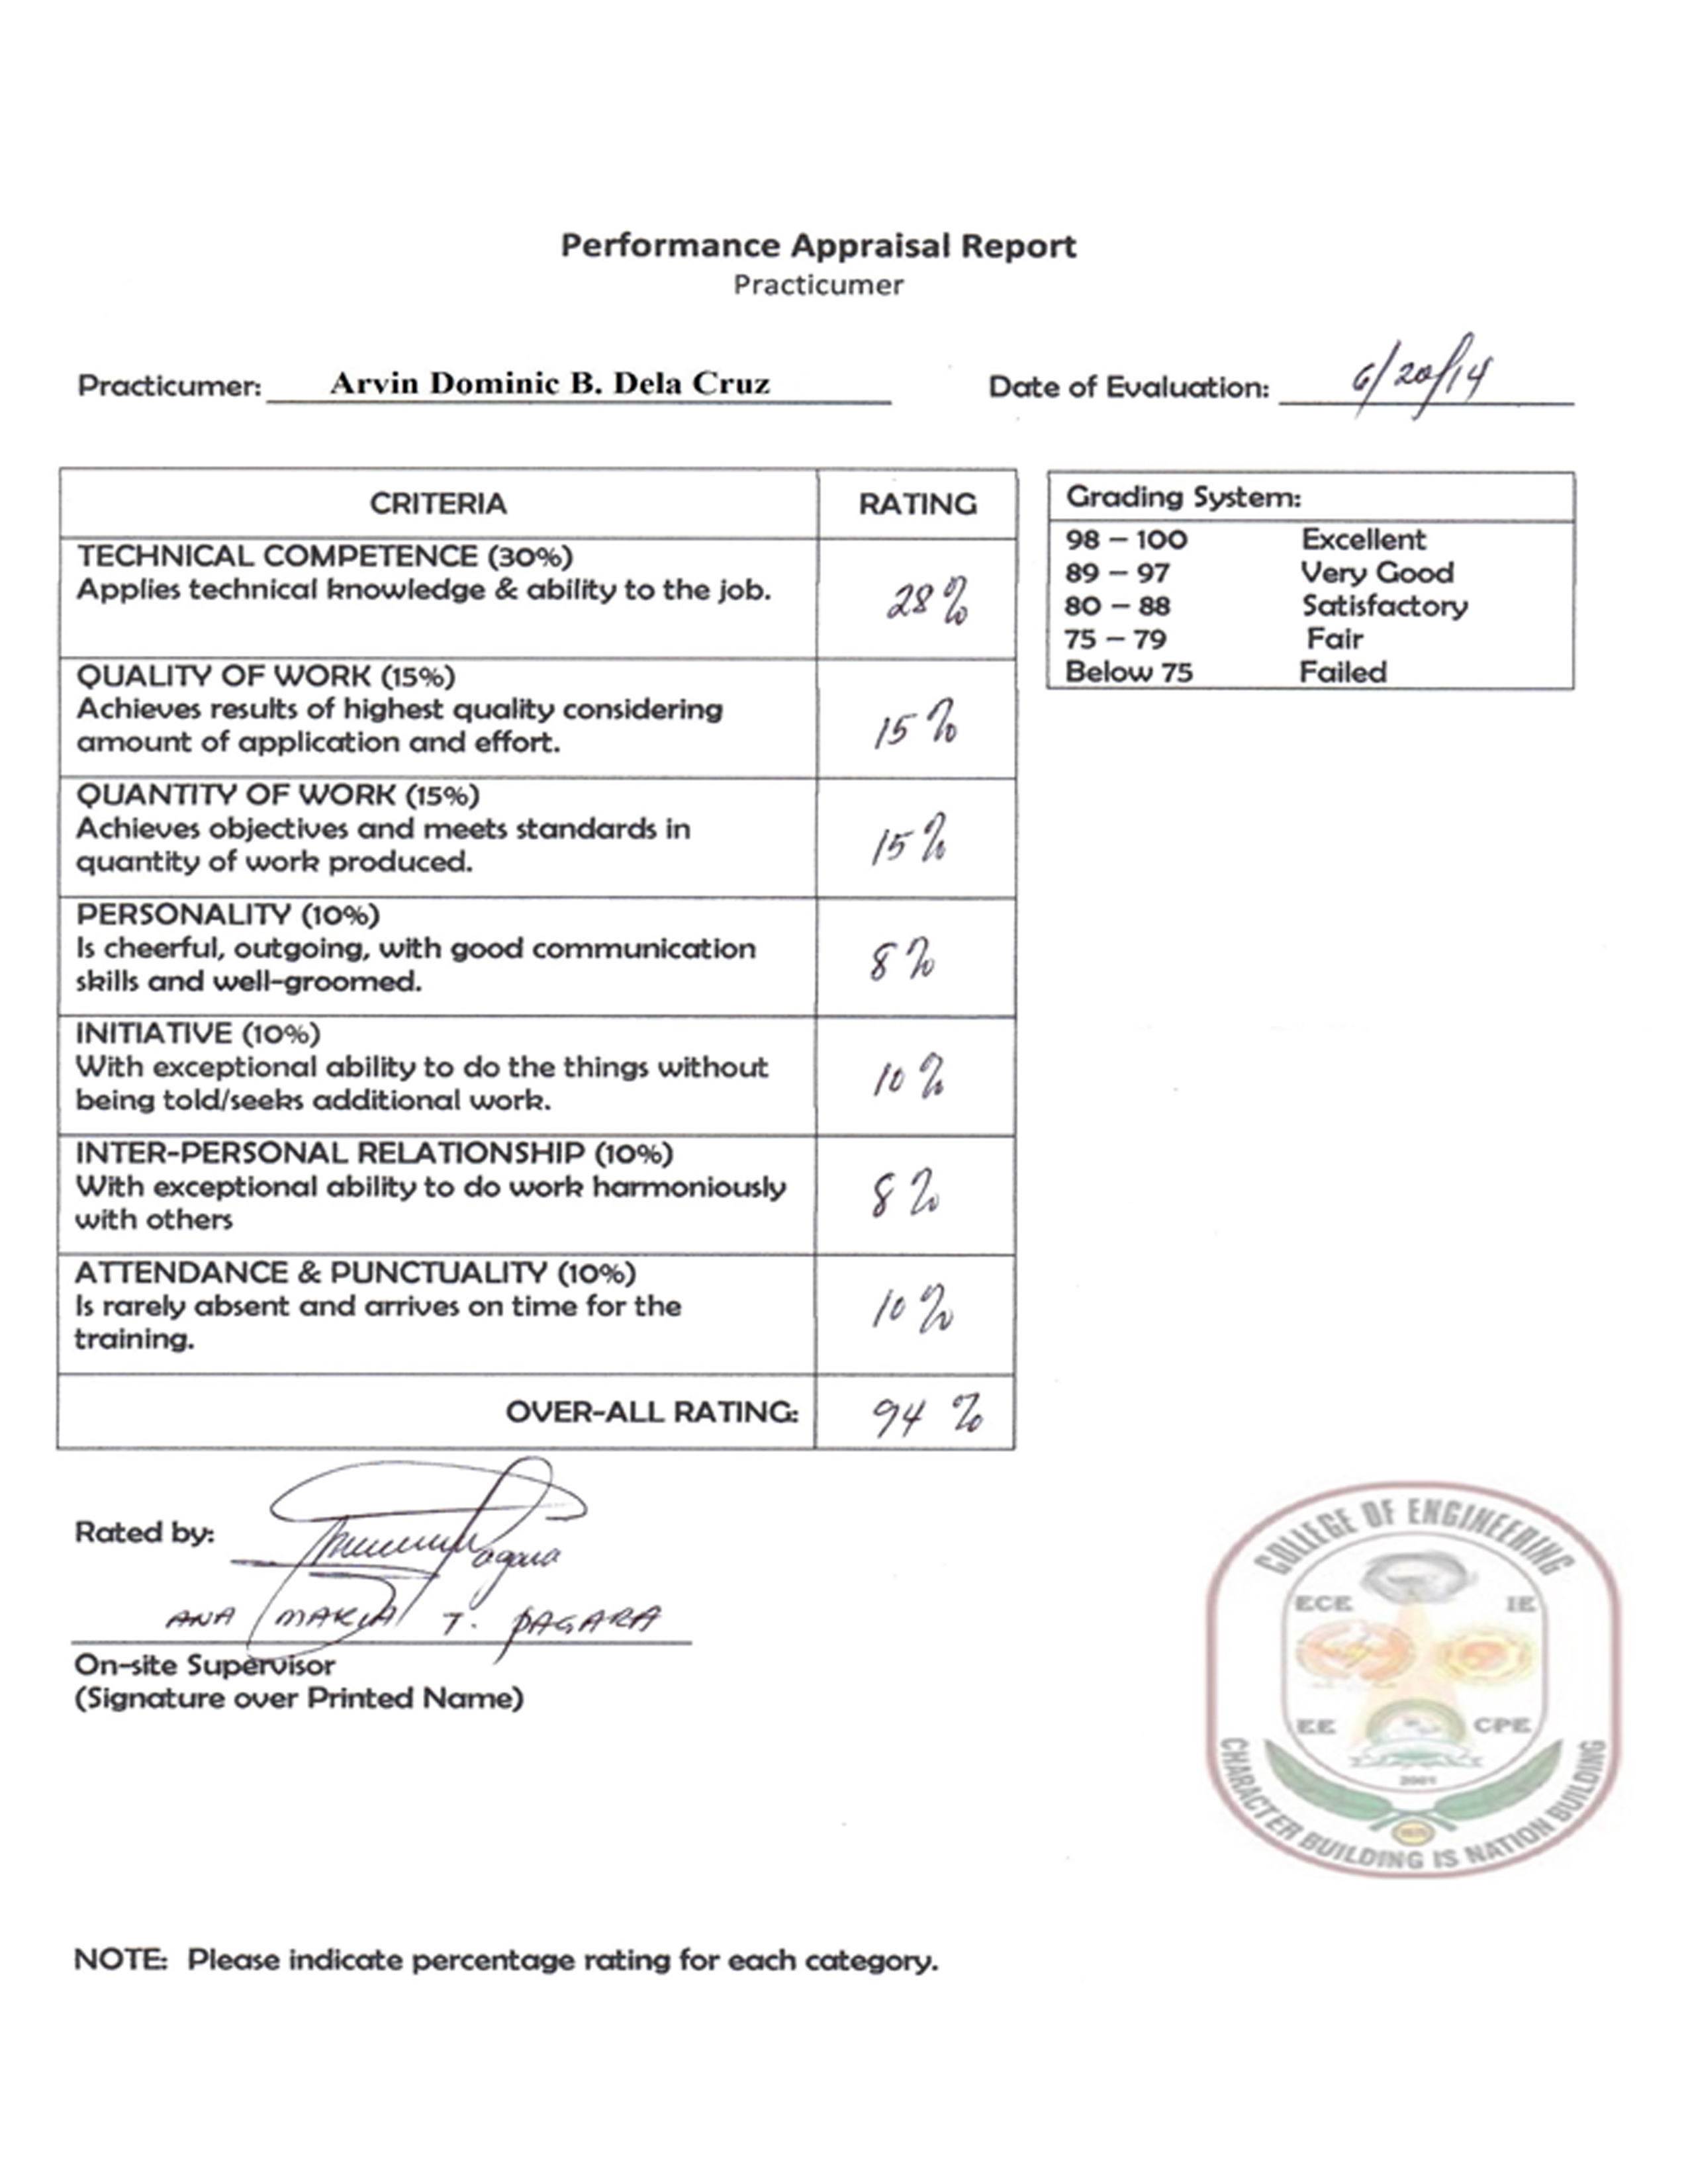 Performance Appraisal Report
Practicumer
Practicumer: Arvin Dominic B. Dela Cruz Date of Evaluation: 6/20/14
CRITERIA RATING
TECHNICAL COMPETENCE (30%)
Applies technical knowledge & ability to the job.
28%
QUALITY OF WORK (15%)
Achieves results of highest quality considering
amount of application and effort.
15%
QUANTITY OF WORK (15%)
Achieves objectives and meets standards in
quantity of work produced.
15%
PERSONALITY (10%)
Is cheerful, outgoing, with good communication
skills and well-groomed.
8%
INITIATIVE (10%)
With exceptional ability to do the things without
being told/seeks additional work.
10%
INTER-PERSONAL RELATIONSHIP (10%)
With exceptional ability to do work harmoniously
with others
8%
ATTENDANCE & PUNCTUALITY (10%)
Is rarely absent and arrives on time for the
training.
10%
OVER-ALL RATING: 94 %
Grading System:
98 – 100 Excellent
89 – 97 Very Good
80 – 88 Satisfactory
75 – 79 Fair
Below 75 Failed
Rated by:
ANA MARIA T. PAGARA
On-site Supervisor
(Signature over Printed Name)
COLLEGE OF ENGINEERING
ECE IE
EE CPE
2001
CHARACTER BUILDING IS NATION BUILDING
NOTE: Please indicate percentage rating for each category.